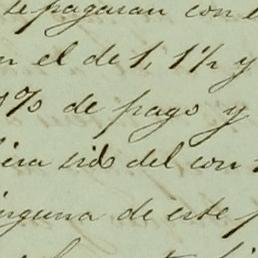 se pagaran con e
n el de 1, 1½ y
8% de pago y
biera sido del con
inguna de este p